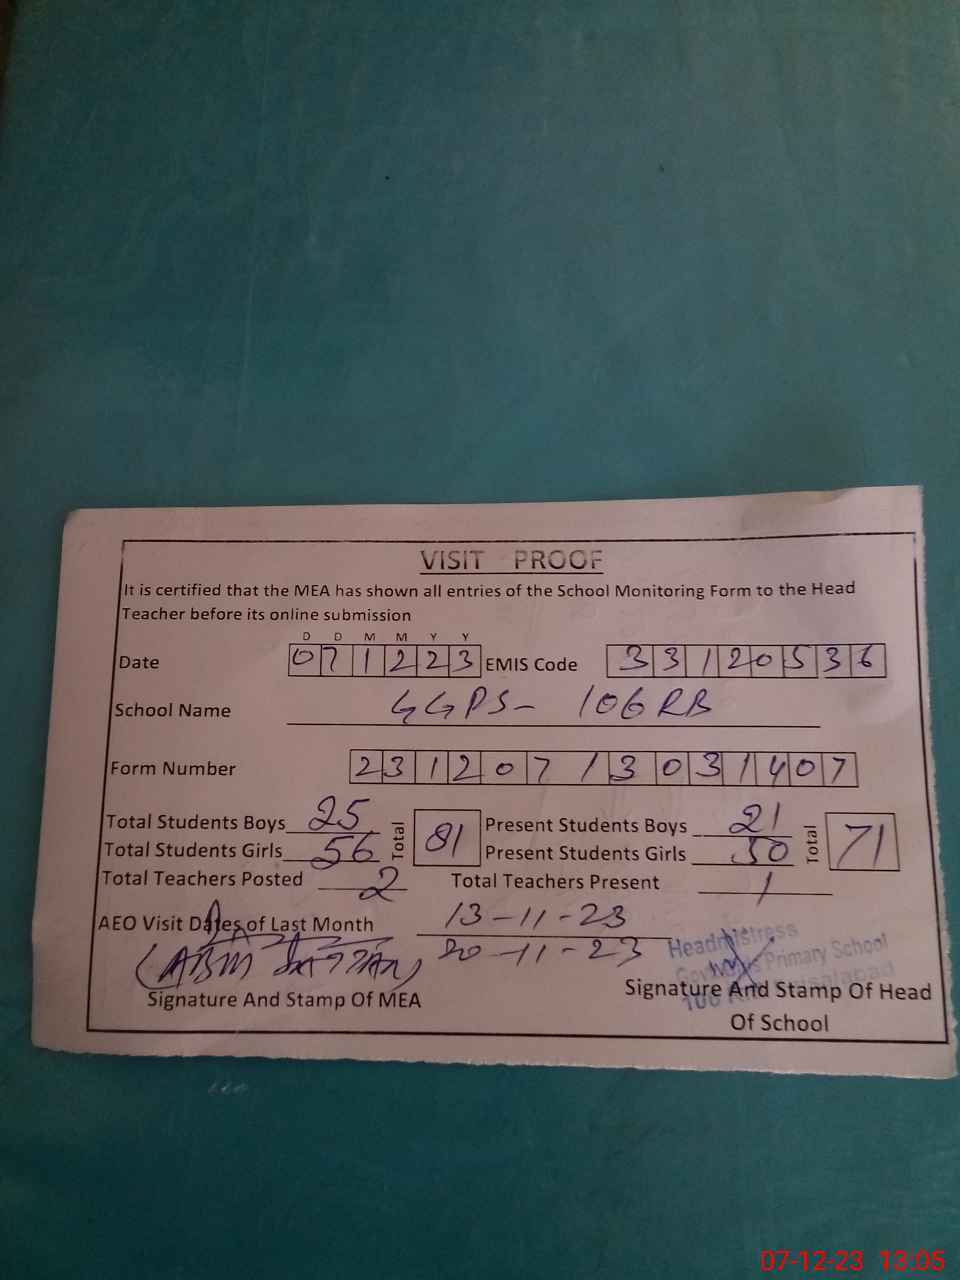 VISIT PROOF
It is certified that the MEA has shown all entries of the School Monitoring Form to the Head
Teacher before its online submission
D D M M Y Y
Date 071223 EMIS Code 33120536
School Name GGPS- 106 RB
Form Number 231207/3031407
Total Students Boys 25 Total 81 Present Students Boys 21 Total 71
Total Students Girls 56 Present Students Girls 50
Total Teachers Posted 2 Total Teachers Present 1
AEO Visit Dates of Last Month 13-11-23
20-11-23
Headmistress
Primary School
Signature And Stamp Of MEA Signature And Stamp Of Head
Of School
07-12-23 13:05